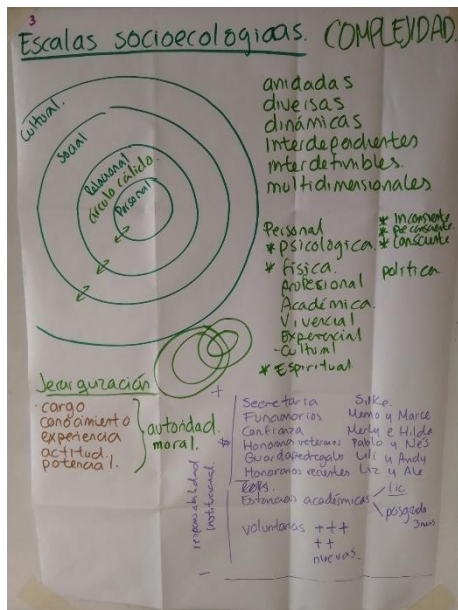 3
Escalas socioecologicas. COMPLEJIDAD.
Cultural.
Social
Relacional
círculo cálido.
Personal
anidadas
diversas
dinámicas
Interdependientes
interdefinibles.
multidimensionales
Personal
* psicologica.
* física.
Profesional
Académica.
Vivencial
Experencial
-Cultural
* Espiritual
* Inconsiente
* Preconsciente.
* Consciente
política
Jerarquización
cargo
conocimiento
experiencia
actitud.
potencial.
autoridad
moral.
+
responsabilidad
Institucional
-
Secretaria Silke.
Funcionarios Memo y Marce
Confianza Merly e Hilda
* Honorarios veteranos Pablo y Nés
Guardapedregales Uli y Andy
Honorarios recientes Liz y Ale
Estancias académicas
Lic
posgrado
3 meses
voluntarias +++
++
nuevas.